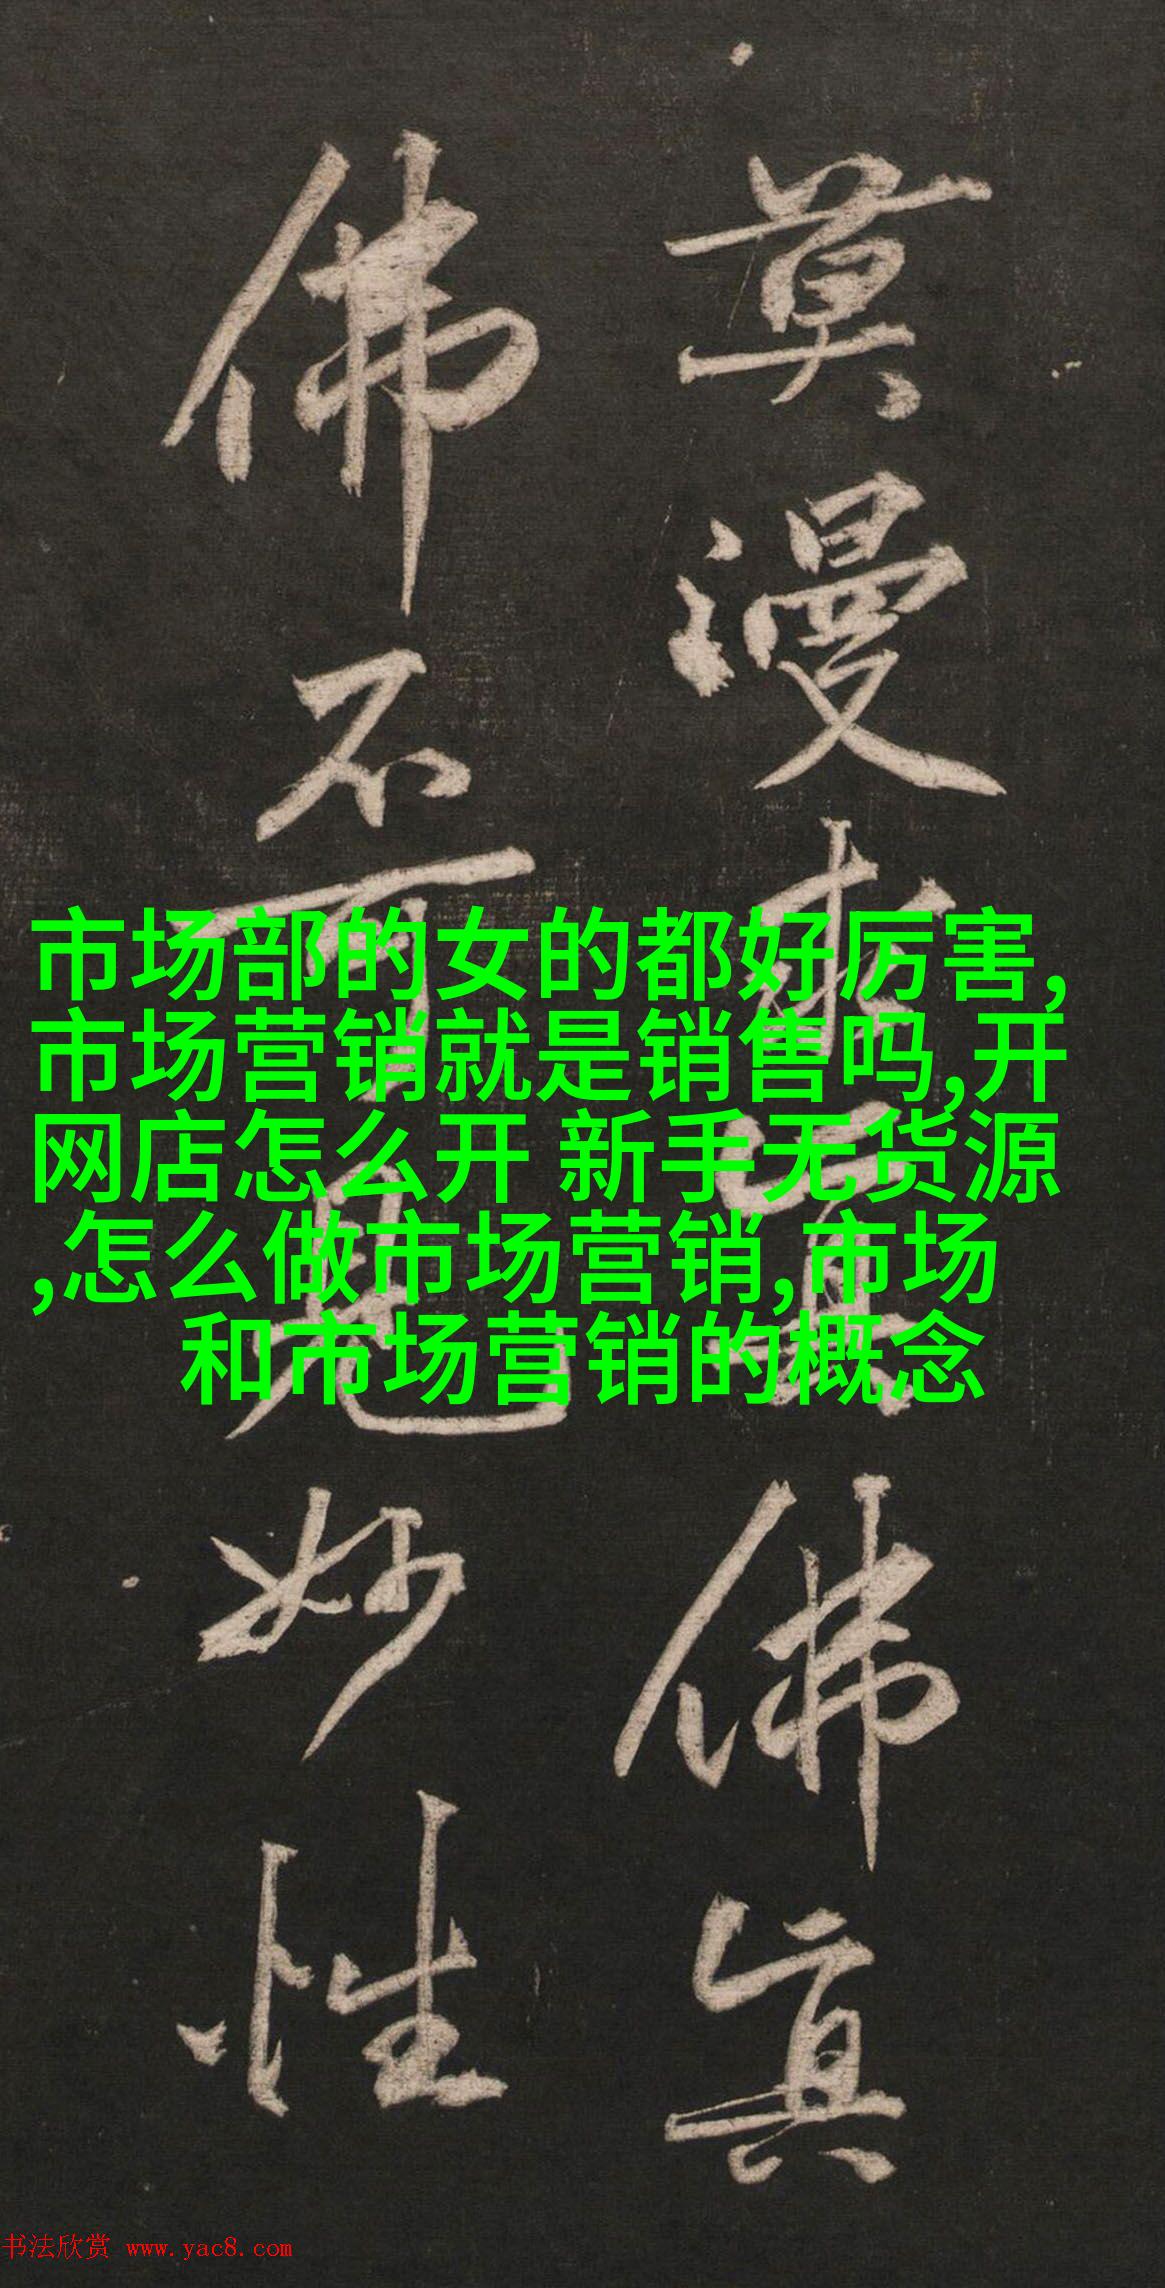 莫漫求真佛真
佛不可見妙性
市场部的女的都好厉害,
市场营销就是销售吗,开
网店怎么开 新手无货源
,怎么做市场营销,市场
和市场营销的概念
书法欣赏 www.yac8.com